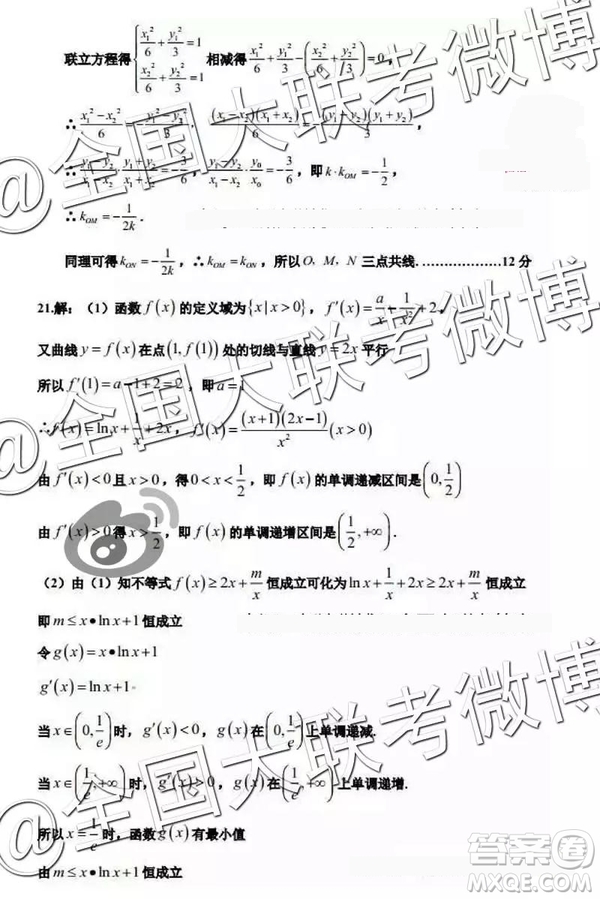 联立方程得 { x₁²/6 + y₁²/3 = 1, x₂²/6 + y₂²/3 = 1 相减得 x₁²/6 + y₁²/3 - (x₂²/6 + y₂²/3) = 0,
∴ (x₁² - x₂²)/6 = -(y₁² - y₂²)/3, (x₁ - x₂)(x₁ + x₂)/6 = -(y₁ - y₂)(y₁ + y₂)/3,
∴ (y₁ - y₂)/(x₁ - x₂) · (y₁ + y₂)/(x₁ + x₂) = -3/6, (y₁ - y₂)/(x₁ - x₂) · y₀/x₀ = -3/6, 即 k·k_OM = -1/2,
∴ k_OM = -1/(2k).
同理可得 k_ON = -1/(2k), ∴ k_OM = k_ON, 所以 O, M, N 三点共线. ………………12 分
21.解:(1)函数 f(x) 的定义域为 {x | x > 0}, f′(x) = a/x - 1/x² + 2,
又曲线 y = f(x) 在点 (1, f(1)) 处的切线与直线 y = 2x 平行
所以 f′(1) = a - 1 + 2 = 2, 即 a = 1
∴ f(x) = ln x + 1/x + 2x, f′(x) = (x+1)(2x-1)/x² (x > 0)
由 f′(x) < 0 且 x > 0, 得 0 < x < 1/2, 即 f(x) 的单调递减区间是 (0, 1/2)
由 f′(x) > 0 得 x > 1/2, 即 f(x) 的单调递增区间是 (1/2, +∞).
(2)由(1)知不等式 f(x) ≥ 2x + m/x 恒成立可化为 ln x + 1/x + 2x ≥ 2x + m/x 恒成立
即 m ≤ x • ln x + 1 恒成立
令 g(x) = x • ln x + 1
g′(x) = ln x + 1
当 x ∈ (0, 1/e) 时, g′(x) < 0, g(x) 在 (0, 1/e) 上单调递减.
当 x ∈ (1/e, +∞) 时, g′(x) > 0, g(x) 在 (1/e, +∞) 上单调递增.
所以 x = 1/e 时, 函数 g(x) 有最小值
由 m ≤ x • ln x + 1 恒成立
@全国大联考微博
@全国大联考微博
答案圈
MXQE.COM